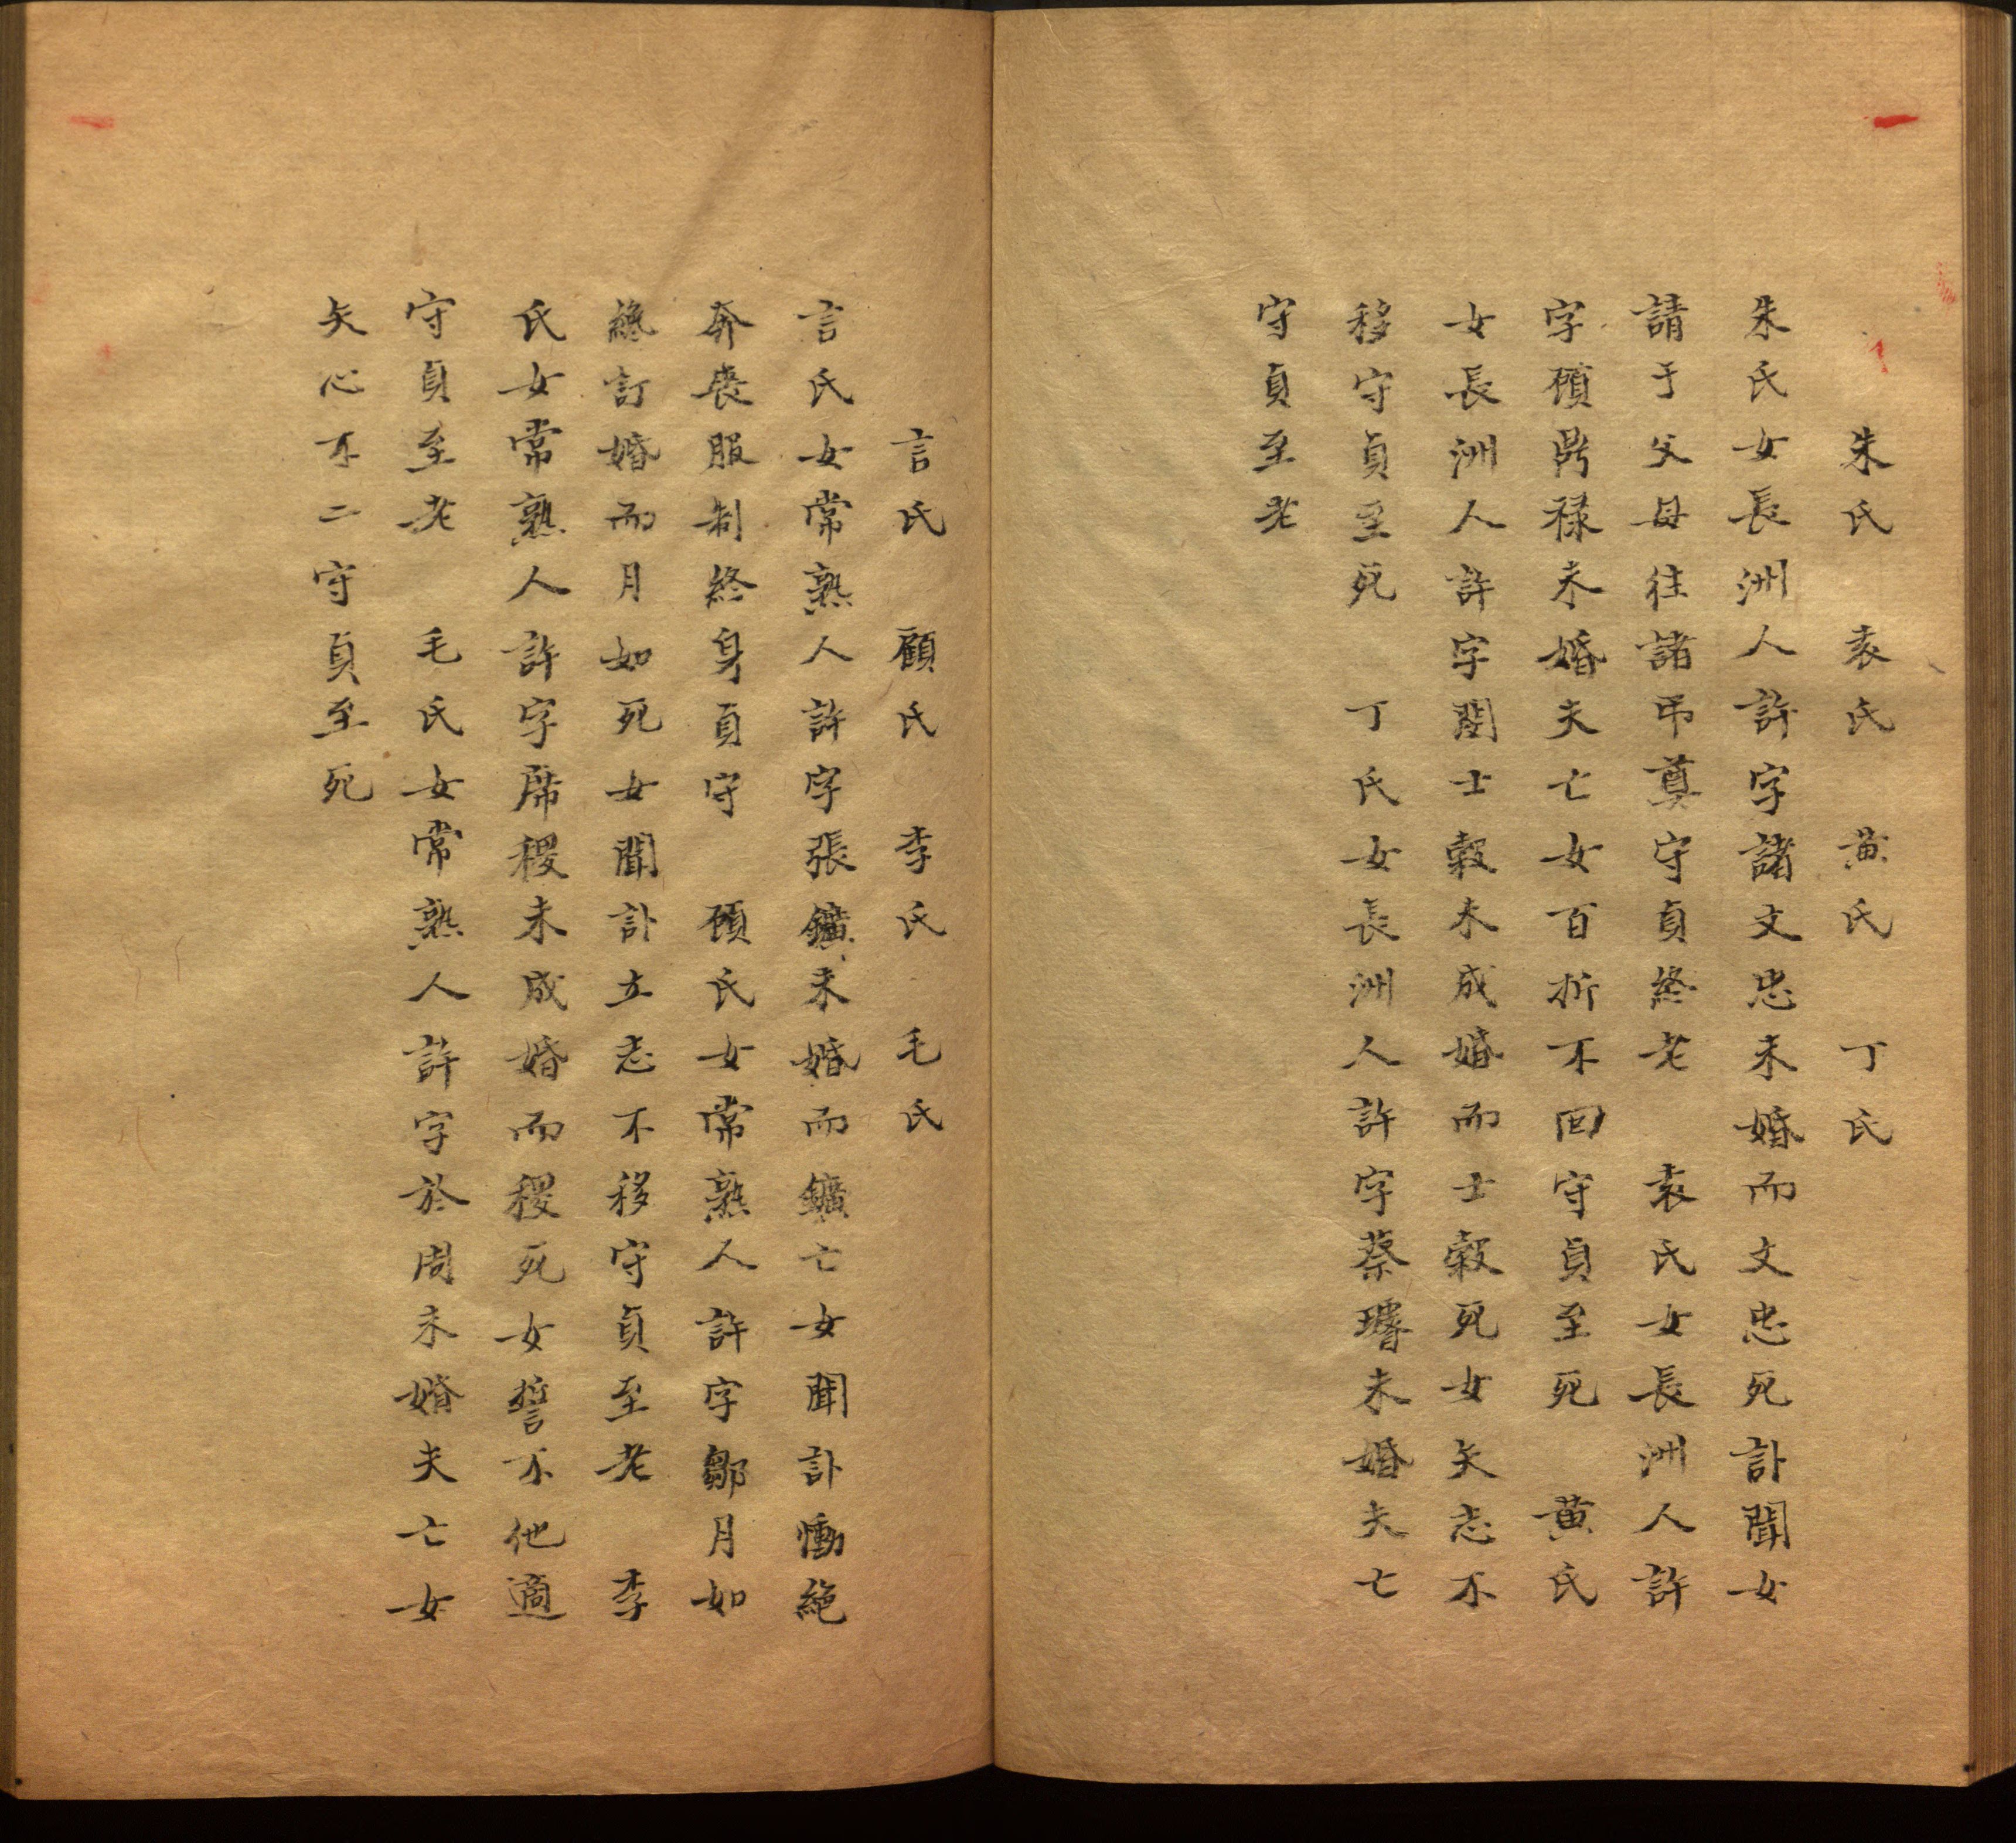 朱氏　袁氏　黄氏　丁氏
朱氏女長洲人許字諸文忠未婚而文忠死訃聞女
請于父母往諸弔奠守貞終老　袁氏女長洲人許
字顧鼎禄未婚夫亡女百折不回守貞至死　黄氏
女長洲人許字閔士榖未成婚而士榖死女矢志不
移守貞至死　丁氏女長洲人許字蔡璿未婚夫亡
守貞至老
言氏　顧氏　李氏　毛氏
言氏女常熟人許字張鑛未婚而鑛亡女聞訃慟絶
奔喪服制終身貞守　顧氏女常熟人許字鄒月如
纔訂婚而月如死女聞訃立志不移守貞至老　李
氏女常熟人許字席稷未成婚而稷死女誓不他適
守貞至老　毛氏女常熟人許字於周未婚夫亡女
矢心不二守貞至死